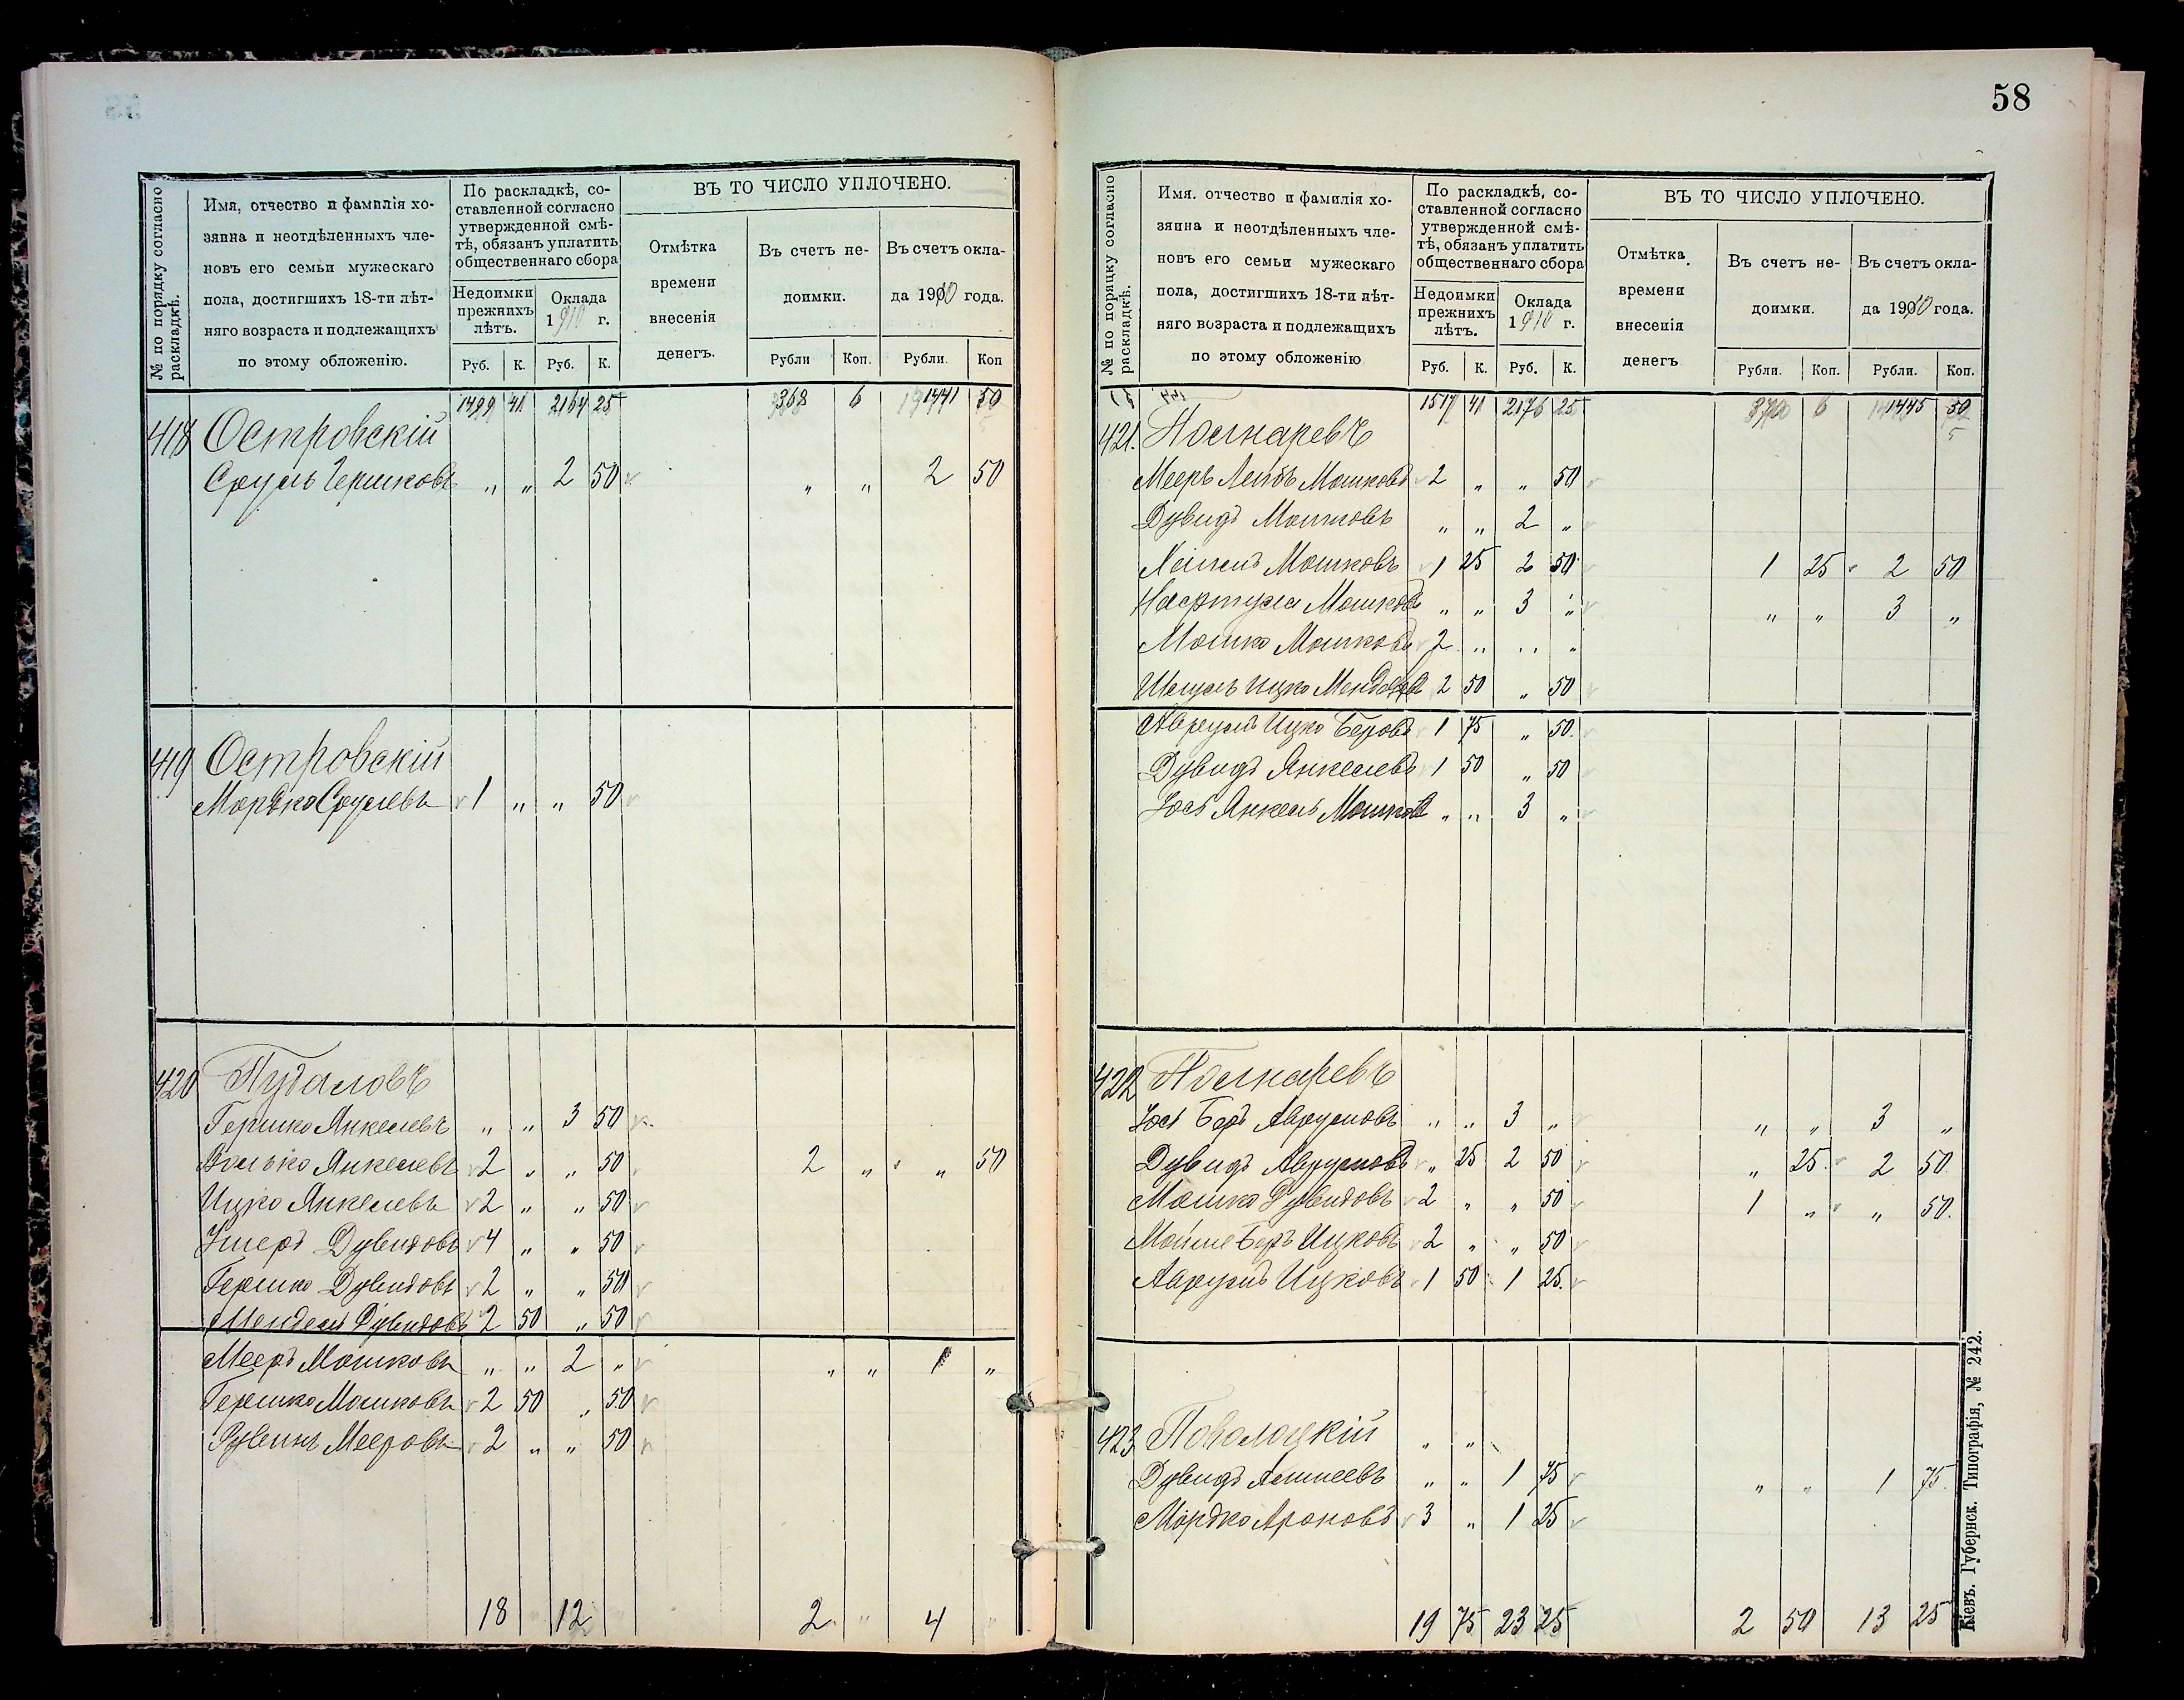 58
№ по порядку согласно раскладкѣ.
Имя, отчество и фамилія хозяина и неотдѣленныхъ членовъ его семьи мужескаго пола, достигшихъ 18-ти лѣтняго возраста и подлежащихъ по этому обложенію.
По раскладкѣ, составленной согласно утвержденной смѣтѣ, обязанъ уплатить общественнаго сбора
Недоимки прежнихъ лѣтъ.
Оклада 1910 г.
ВЪ ТО ЧИСЛО УПЛОЧЕНО.
Отмѣтка времени внесенія денегъ.
Въ счетъ недоимки.
Въ счетъ оклада 1910 года.
Руб. К. Руб. К. Рубли Коп. Рубли. Коп
1499 41 2164 25 368 6 1441 50
418 Островскій
Сруль Гершковъ „ „ 2 50 „ „ 2 50
419 Островскій
Мордко Срулевъ 1 „ „ 50
420 Пудаловъ
Гершко Янкелевъ „ „ 3 50
Волько Янкелевъ 2 „ „ 50 2 „ „ 50
Ицко Янкелевъ 2 „ „ 50
Ушеръ Дувидовъ 4 „ „ 50
Гершко Дувидовъ 2 „ „ 50
Мендель Дувидовъ 2 50 „ 50
Мееръ Мошковъ „ „ 2 „ „ „ 1 „
Гершко Мошковъ 2 50 „ 50
Рувинъ Мееровъ 2 „ „ 50
18 12 2 „ 4
№ по порядку согласно раскладкѣ.
Имя. отчество и фамилія хозяина и неотдѣленныхъ членовъ его семьи мужескаго пола, достигшихъ 18-ти лѣтняго возраста и подлежащихъ по этому обложенію
По раскладкѣ, составленной согласно утвержденной смѣтѣ, обязанъ уплатить общественнаго сбора
Недоимки прежнихъ лѣтъ.
Оклада 1910 г.
ВЪ ТО ЧИСЛО УПЛОЧЕНО.
Отмѣтка времени внесенія денегъ
Въ счетъ недоимки.
Въ счетъ оклада 1910 года.
Руб. К. Руб. К. Рубли. Коп. Рубли. Коп.
1517 41 2176 25 370 6 1445 50
421. Поляревъ
Мееръ Лейбъ Мошковъ 2 „ „ 50
Дувидъ Мошковъ „ „ 2 „
Мошковъ 1 25 2 50 1 25 2 50
Мошковъ „ „ 3 „ „ „ 3 „
Мошко Мошковъ 2 „ „ „
Ицко 2 50 „ 50
Аврумъ Ицко Беровъ 1 75 „ 50.
Дувидъ Янкелевъ 1 50 „ 50
Іось Янкель Мошковъ „ „ 3 „
422 Поляревъ
Іось Беръ Аврумовъ „ „ 3 „ „ „ 3 „
Дувидъ Аврумовъ „ 25 2 50 „ 25 2 50.
Мошко Дувидовъ 2 „ „ 50 1 „ „ 50.
Мойше Беръ Ицковъ 2 „ „ 50
Аврумъ Ицковъ 1 50 1 25.
423 Поволоцкій „ „
Дувидъ „ „ 1 75 „ „ 1 75.
Мордко Ароновъ 3 „ 1 25
19 75 23 25 2 50 13 25
Кіевъ. Губернск. Типографія, № 242.